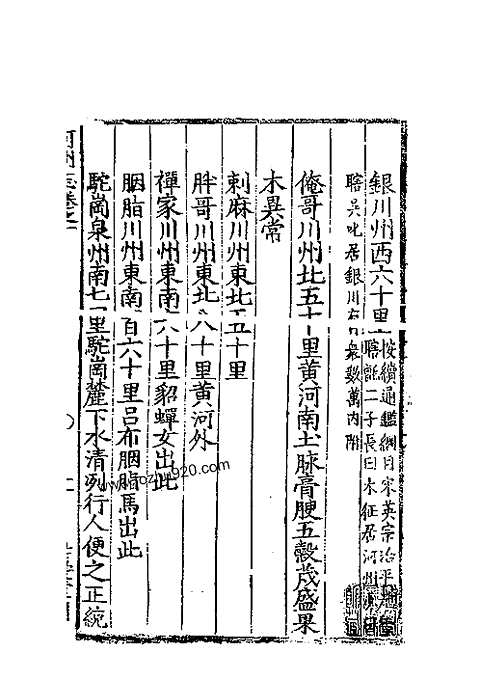 銀川州西六十里
按續通鑑綱目宋英宗治平
瞎氈二子長曰木征居河州
瞎吳叱居銀川有衆數萬內附
俺哥川州北五十里黃河南土脉膏腴五穀茂盛果
木異常
剌麻川州東北五十里
胖哥川州東北八十里黃河外
禪家川州東南六十里貂蟬女出此
胭脂川州東南百六十里呂布胭脂馬出此
駝崗泉州南七里駝崗麓下水清冽行人便之正統
河州志卷之一